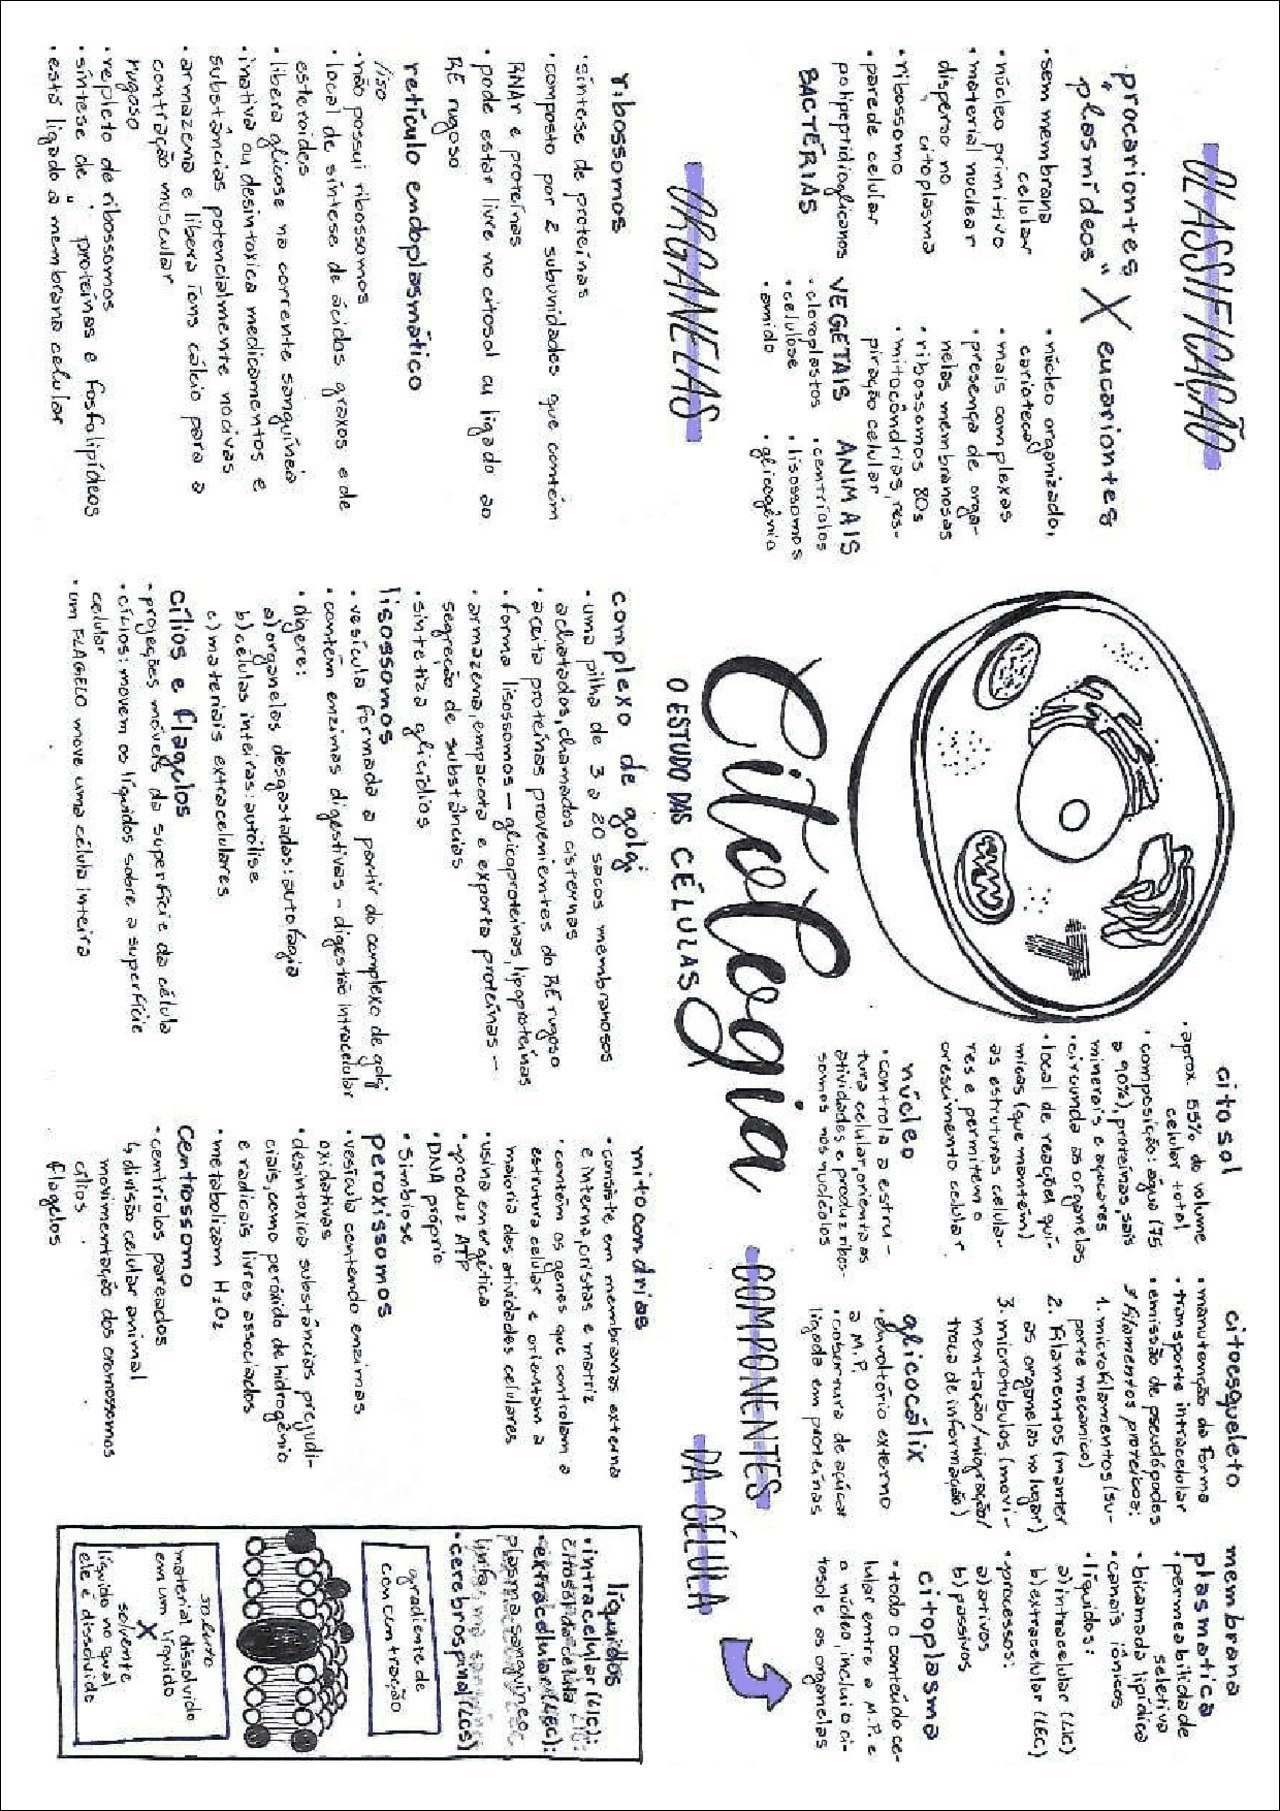 CLASSIFICAÇÃO
procariontes X eucariontes
"plasmídeos"
• sem membrana
celular
• núcleo primitivo
• material nuclear
disperso no
citoplasma
• ribossomo
• parede celular
polipeptidioglicanos
BACTÉRIAS
• núcleo organizado,
carioteca
• mais complexas
• presença de orga-
nelas membranosas
• ribossomos 80s
• mitocôndrias, res-
piração celular
VEGETAIS
• cloroplastos
• celulose
• amido
ANIMAIS
• centríolos
• lisossomos
• glicogênio
Citologia
O ESTUDO DAS CÉLULAS
citosol
• aprox. 55% do volume
celular total
• composição: água (75
a 90%), proteínas, sais
minerais e açúcares
• circunda as organelas
• local de reações quí-
micas (que mantém)
as estruturas celula-
res e permitem o
crescimento celular
núcleo
• controla a estru-
tura celular, orienta as
atividades e produz ribos-
somos nos nucléolos
citoesqueleto
• manutenção da forma
• transporte intracelular
• emissão de pseudópodes
3 filamentos proteicos:
1. microfilamentos (su-
porte mecânico)
2. filamentos (manter
as organelas no lugar)
3. microtúbulos (movi-
mentação/migração/
troca de informação)
glicocálix
• envoltório externo
a M.P.
• cobertura de açúcar
ligada em proteínas
membrana
plasmatica
• permeabilidade
seletiva
• bicamada lipídica
• canais iônicos
• líquidos:
a) intracelular (LIC)
b) extracelular (LEC)
• processos:
a) ativos
b) passivos
citoplasma
• todo o conteúdo ce-
lular entre a M.P. e
o núcleo, inclui o ci-
tosol e as organelas
COMPONENTES
DA CÉLULA
ORGANELAS
ribossomos
• síntese de proteínas
• composto por 2 subunidades que contém
RNAr e proteínas
• pode estar livre no citosol ou ligado ao
RE rugoso
retículo endoplasmático
liso
• não possui ribossomos
• local de síntese de ácidos graxos e de
esteroides
• libera glicose na corrente sanguínea
• inativa ou desintoxica medicamentos e
substâncias potencialmente nocivas
• armazena e libera íons cálcio para a
contração muscular
rugoso
• repleto de ribossomos
• síntese de proteínas e fosfolipídeos
• está ligado a membrana celular
complexo de golgi
• uma pilha de 3 a 20 sacos membranosos
achatados, chamados cisternas
• aceita proteínas provenientes do RE rugoso
• forma lisossomos - glicoproteínas, lipoproteínas
• armazena, empacota e exporta proteínas -
segreção de substâncias
• sintetiza glicídios
lisossomos
• vesícula formada a partir do complexo de golgi
• contém enzimas digestivas - digestão intracelular
• digere:
a) organelas desgastadas: autofagia
b) células inteiras: autólise
c) materiais extracelulares
cílios e flagelos
• projeções móveis da superfície da célula
• cílios: movem os líquidos sobre a superfície
celular
• um FLAGELO move uma célula inteira
mitocondrias
• consiste em membranas externa
e interna, cristas e matriz
• contém os genes que controlam a
estrutura celular e orientam a
maioria das atividades celulares
• usina energética
• produz ATP
• DNA próprio
• Simbiose
peroxissomos
• vesícula contendo enzimas
oxidativas
• desintoxica substâncias prejudi-
ciais, como peróxido de hidrogênio
e radicais livres associados
• metabolizam H₂O₂
centrossomo
• centríolos pareados
↳ divisão celular animal
movimentação dos cromossomos
cílios
flagelos
líquidos
• intracelular (LIC):
citosol da célula
• extracelular (LEC):
plasma sanguíneo
linfa
• cerebrospinal (LCS)
gradiente de
concentração
soluto
material dissolvido
em um líquido
X
solvente
líquido no qual
ele é dissolvido